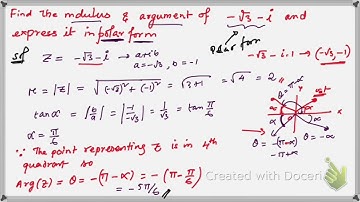 Find the mdulus & argument of -√3 - i and
express it in polar form
polar form
Sol
Z = -√3 - i → a+ib
a = -√3, b = -1
-√3 - i·1 → (-√3, -1)
r = |Z| = √((-√3)² + (-1)²) = √(3+1) = √4 = 2
tan α = |b/a| = |-1/-√3| = 1/√3 = tan π/6
α = π/6
θ = π-α
θ = -(π-α)
-π+α
θ = -α
∵ The point representing Z is in 4th
quadrant so
Arg(Z) = θ = -(π-α) = -(π-π/6)
= -5π/6
Created with Doceri